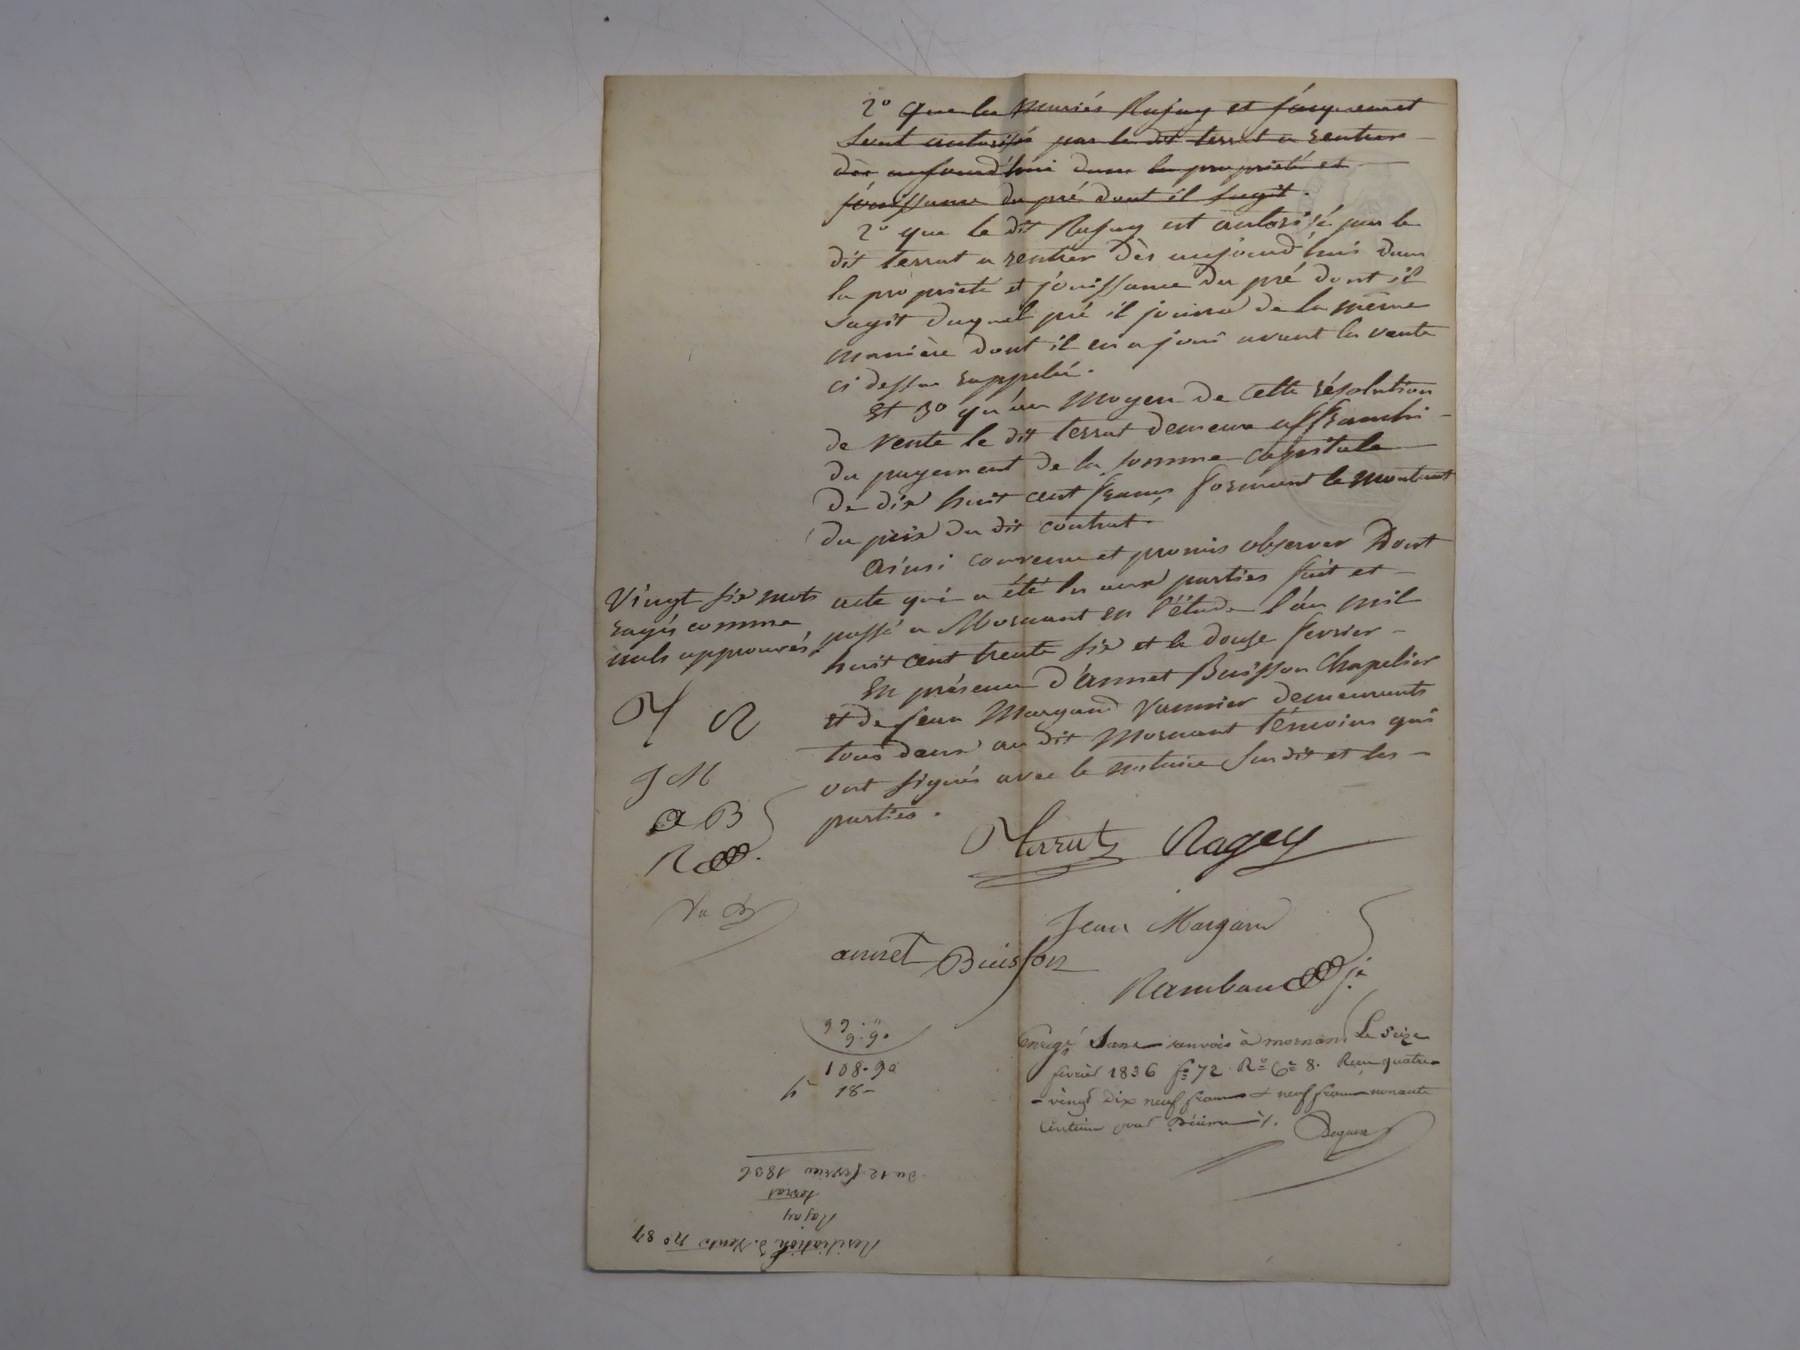 2° que les mariés Rajay et Jacquemet
sont autorisés par le dit terrat a rentrer
dès aujourd'hui dans la propriété et
jouissance du pré dont il sagit.
2° que le dit Rajay est autorisé par le
dit terrat a rentrer dès aujourd'hui dans
la propriété et jouissance du pré dont il
sagit duquel pré il jouira de la même
manière dont il en a joui avant la vente
ci dessus rappelée.
Et 3° qu'au moyen de cette résolution
de vente le dit terrat demeure affranchi
du payement de la somme capitale
de dix huit cent francs formant le montant
du prix du dit contrat.
Ainsi convenu et promis observer Dont
acte qui a été lu aux parties fait et
passé a Mornant en l'étude l'an mil
huit cent trente six et le douze fevrier
En présence d'annet Buisson Chapelier
et de Jean Margand Vannier demeurants
tous deux au dit Mornant témoins qui
ont signés avec le notaire susdit et les
parties.
Vingt six mots
rayés comme
nuls approuvés.
T R
J M
a B
R
Terrat Ragey
Jean Margand
annet Buisson
Rambaud je
99 "
9.90
108.90
18-
Enregé sans renvois à mornant Le seize
février 1836 fo 72 Ro Ce 8. Reçu quatre
-vingt dix neuf francs & neuf francs nonante
centimes pour Décime
Résiliation de Vente n° 87
Rajay
terrat
Du 12 fevrier 1836